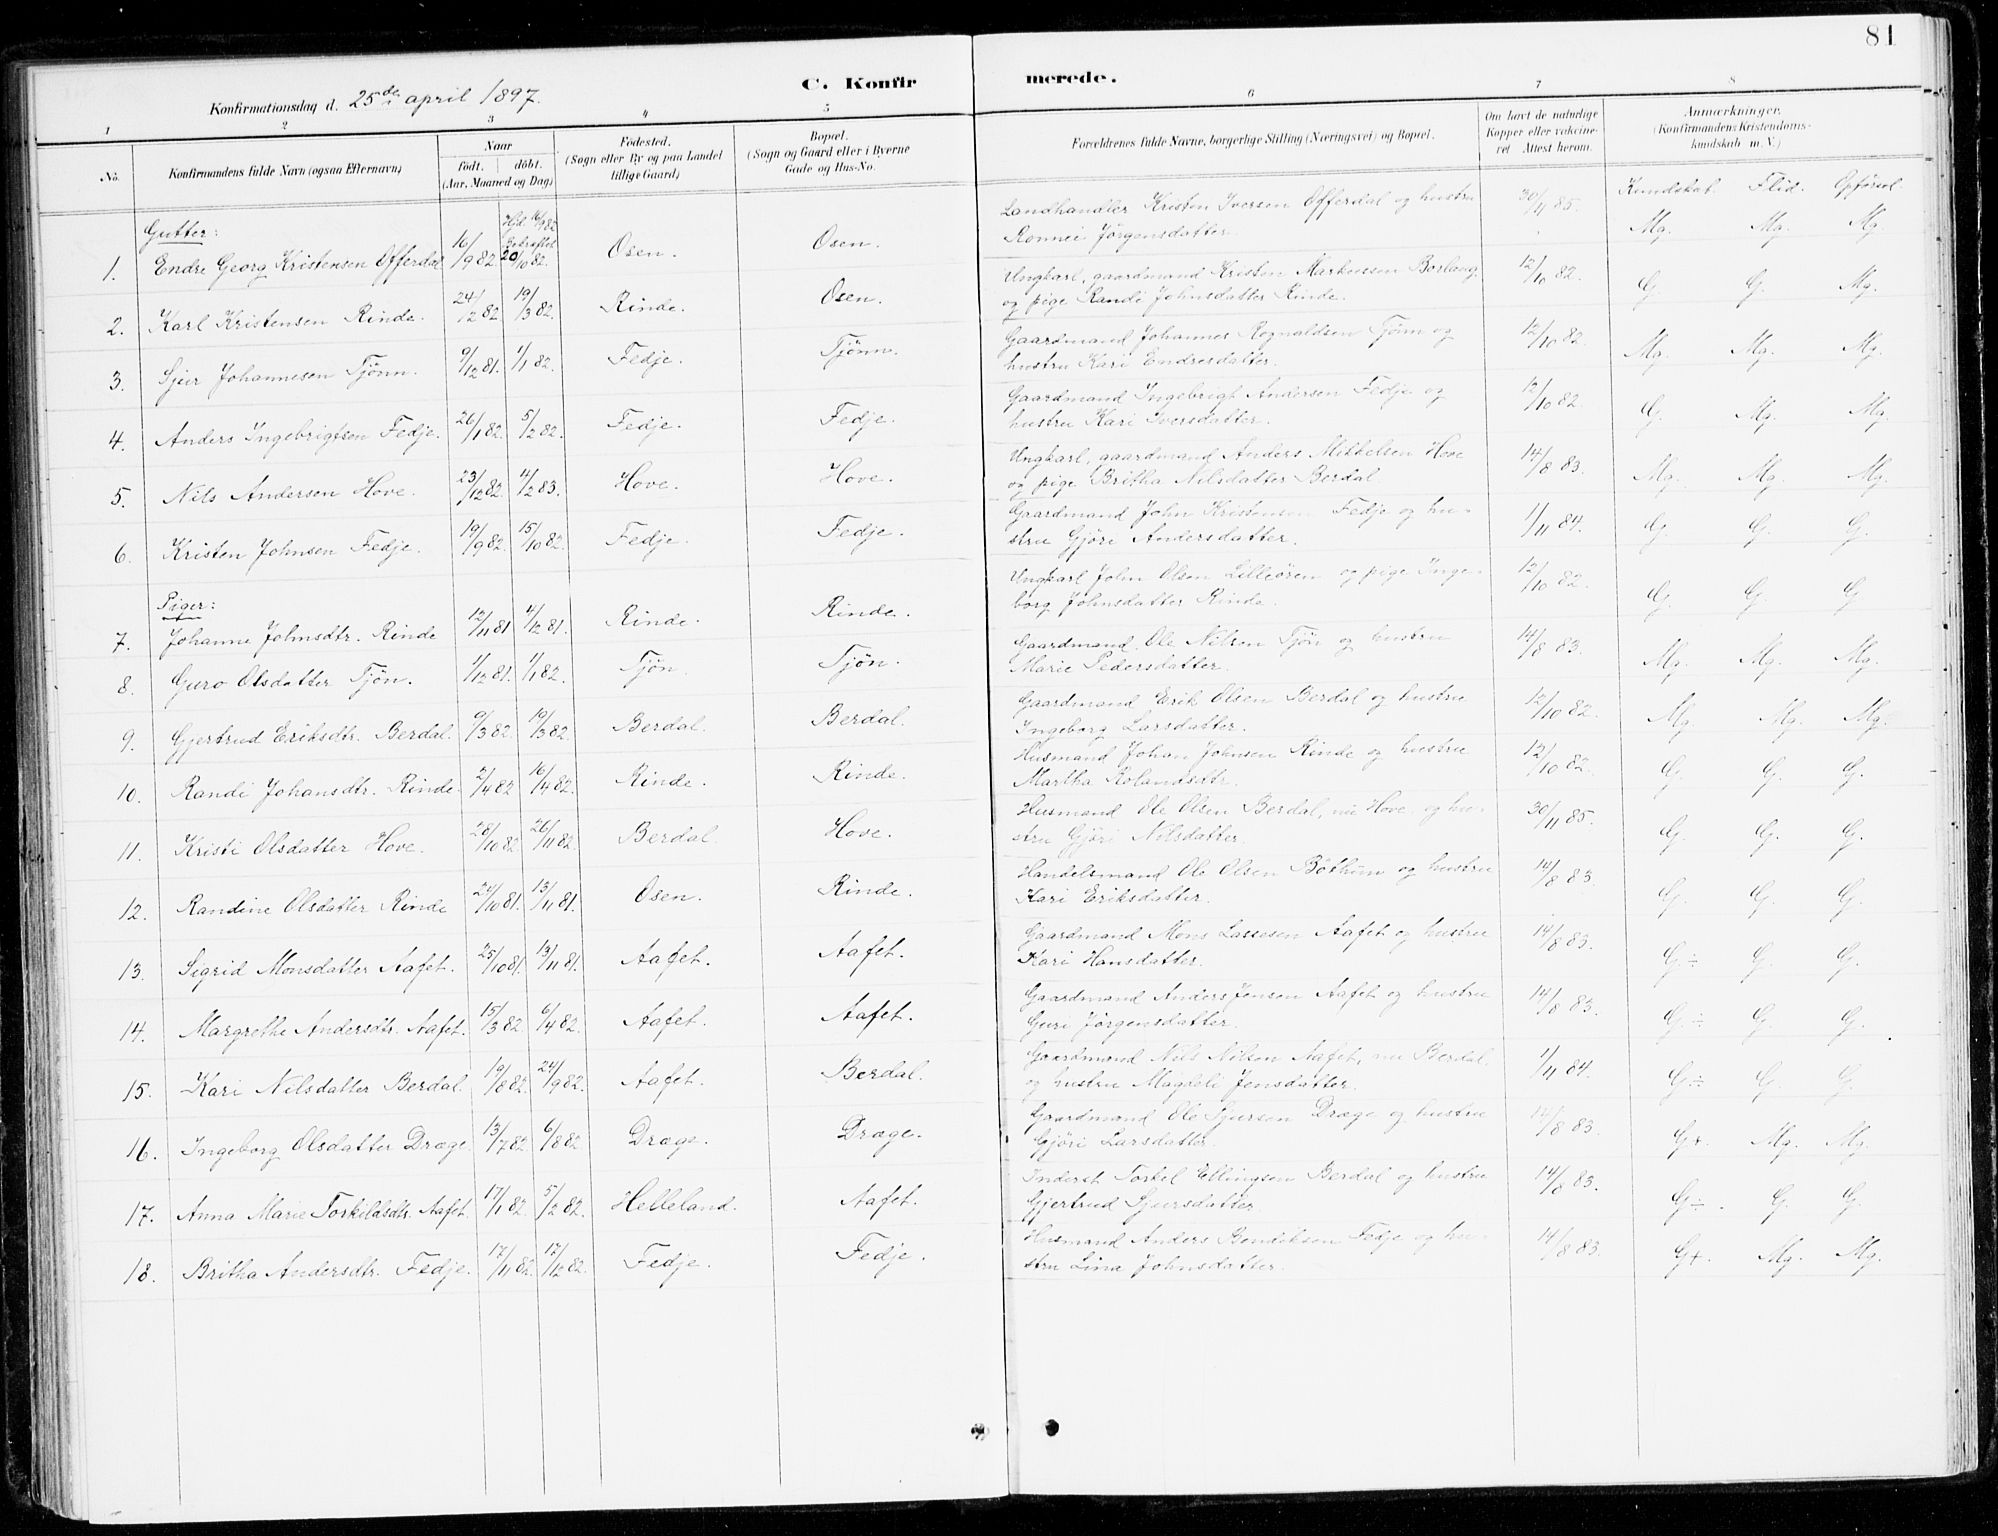 81
C. Konfirmerede.
Konfirmationsdag d. 25de april 1897.
1 2 3 4 5 6 7 8
No. Konfirmandens fulde Navn (ogsaa Efternavn) Naar født. døbt. (Aar, Maaned og Dag) Fødested. (Sogn eller By og paa Landet tillige Gaard) Bopæl. (Sogn og Gaard eller i Byerne Gade og Hus-No. Forældrenes fulde Navne, borgerlige Stilling (Næringsvei) og Bopæl. Om havt de naturlige Kopper eller vaccineret. Attest herom. Anmærkninger. (Konfirmandens Kristendomskundskab m. V.)
Kundskab. Flid. Opførsel.
Gutter:
1. Endre Georg Kristensen Offerdal 16/9 82 Hjd. 16/9 82 Bekræftet 20/10 82. Osen. Osen. Landhandler Kristen Iversen Offerdal og hustru Ronnei Jørgensdatter. 30/11 85. Mg. Mg. Mg.
2. Karl Kristensen Rinde. 24/2 82 19/3 82. Rinde. Osen. Ungkarl, gaardmand Kristen Markussen Borlaug og pige Randi Johnsdatter Rinde. 12/10 82. G. G. Mg.
3. Sjur Johannesen Tjønn. 9/12 81. 1/1 82. Fedje. Tjønn. Gaardmand Johannes Rognaldsen Tjønn og hustru Kari Endresdatter. 12/10 82. Mg. Mg. Mg.
4. Anders Ingebrigtsen Fedje. 26/1 82. 5/2 82. Fedje. Fedje. Gaardmand Ingebrigt Andersen Fedje og hustru Kari Iversdatter. 12/10 82. G. Mg. Mg.
5. Nils Andersen Hove. 23/12 82. 4/2 83. Hove. Hove. Ungkarl, gaardmand Anders Mikkelsen Hove og pige Britha Nilsdatter Berdal. 14/8 83. Mg. Mg. Mg.
6. Kristen Johnsen Fedje. 19/9 82. 15/10 82. Fedje. Fedje. Gaardmand John Kristensen Fedje og hustru Gjøri Andersdatter. 1/11 84. G. G. G.
Piger:
7. Johanne Johnsdtr. Rinde 12/11 81 4/12 81. Rinde. Rinde. Ungkarl John Olsen Lilleøren og pige Ingeborg Johnsdatter Rinde. 12/10 82. G. G. G
8. Guro Olsdatter Tjøn. 1/12 81. 1/1 82. Tjøn Tjøn. Gaardmand Ole Nilsen Tjøn og hustru Marie Pedersdatter. 14/8 83. Mg. Mg. Mg.
9. Gjertrud Eriksdtr. Berdal. 9/3 82. 19/3 82 Berdal. Berdal. Gaardmand Erik Olsen Berdal og hustru Ingeborg Larsdatter. 12/10 82. Mg. Mg. Mg.
10. Randi Johansdtr. Rinde 2/4 82 16/4 82. Rinde. Rinde. Husmand Johan Johnsen Rinde og hustru Martha Rolandsdtr. 12/10 82. G. G. G.
11. Kristi Olsdatter Hove. 28/10 82 26/11 82. Berdal. Hove. Husmand Ole Olsen Berdal, nu Hove, og hustru Gjøri Nilsdatter. 30/11 85. G. G. G.
12. Randine Olsdatter Rinde 24/10 81. 13/11 81. Osen. Rinde. Handelsmand Ole Olsen Bøthun og hustru Kari Eriksdatter. 14/8 83. G. G. G.
13. Sigrid Monsdatter Aafet. 25/10 81. 13/11 81. Aafet. Aafet. Gaardmand Mons Lassesen Aafet og hustru Kari Hansdatter. 14/8 83. G÷ G. G.
14. Margrethe Andersdtr. Aafet. 15/3 82 6/4 82. Aafet. Aafet. Gaardmand Anders Jensen Aafet og hustru Guri Jørgensdatter. 14/8 83. G÷ G. G.
15. Kari Nilsdatter Berdal. 19/8 82. 24/9 82. Aafet. Berdal. Gaardmand Nils Nilsen Aafet, nu Berdal, og hustru Magdeli Jensdatter. 1/11 84. G÷ G. G.
16. Ingeborg Olsdatter Dræge 13/7 82 6/8 82 Dræge. Dræge. Gaardmand Ole Sjursen Dræge og hustru Gjøri Larsdatter. 14/8 83. G+. Mg. Mg.
17. Anna Marie Torkildsdtr. Aafet. 17/1 82. 5/2 82. Helleland. Aafet. Inderst Torkel Ellingsen Berdal og hustru Gjertrud Sjursdatter. 14/8 83. G÷. G. G.
18. Britha Andersdtr. Fedje. 17/11 82. 17/12 82. Fedje. Fedje. Husmand Anders Bendiksen Fedje og hustru Lina Johnsdatter. 14/8 83. G+. Mg. Mg.